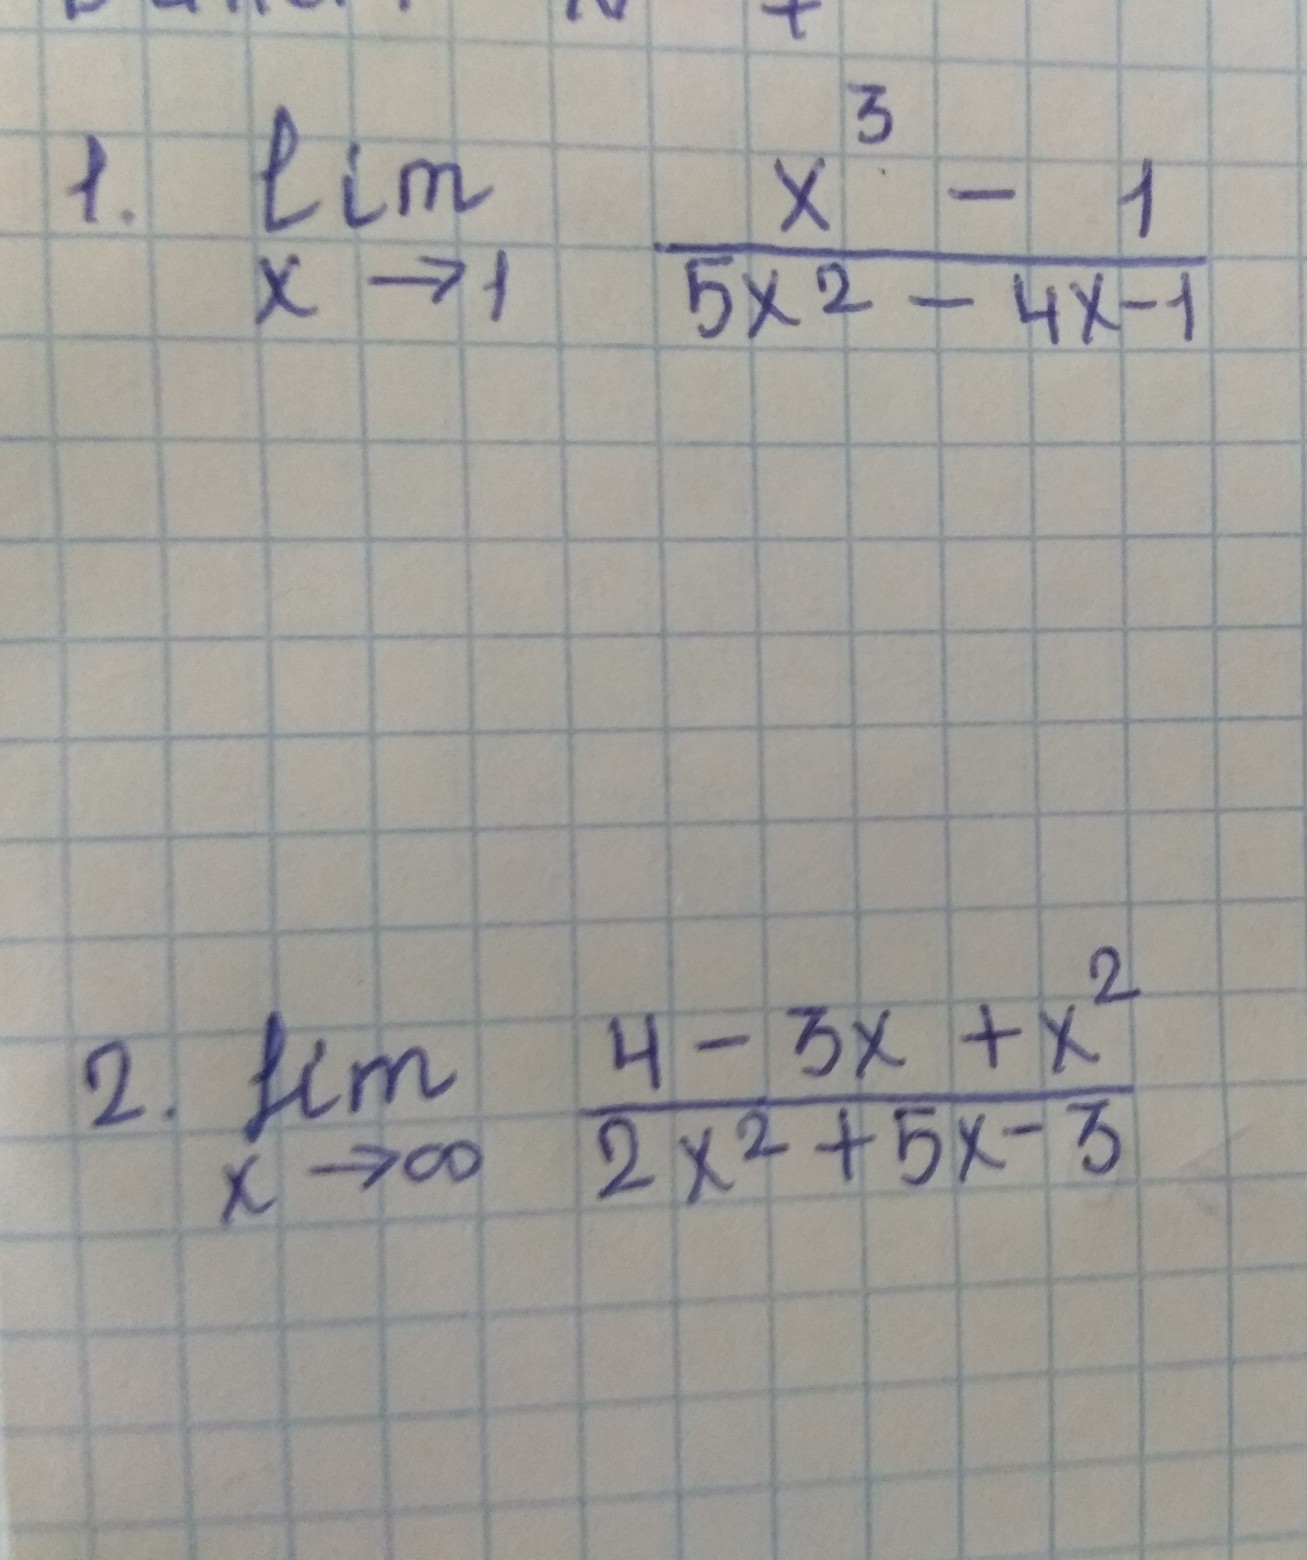 1. lim x³ - 1
x → 1 5x2 - 4x-1
2. lim 4 - 3x + x²
x → ∞ 2x2 + 5x - 3